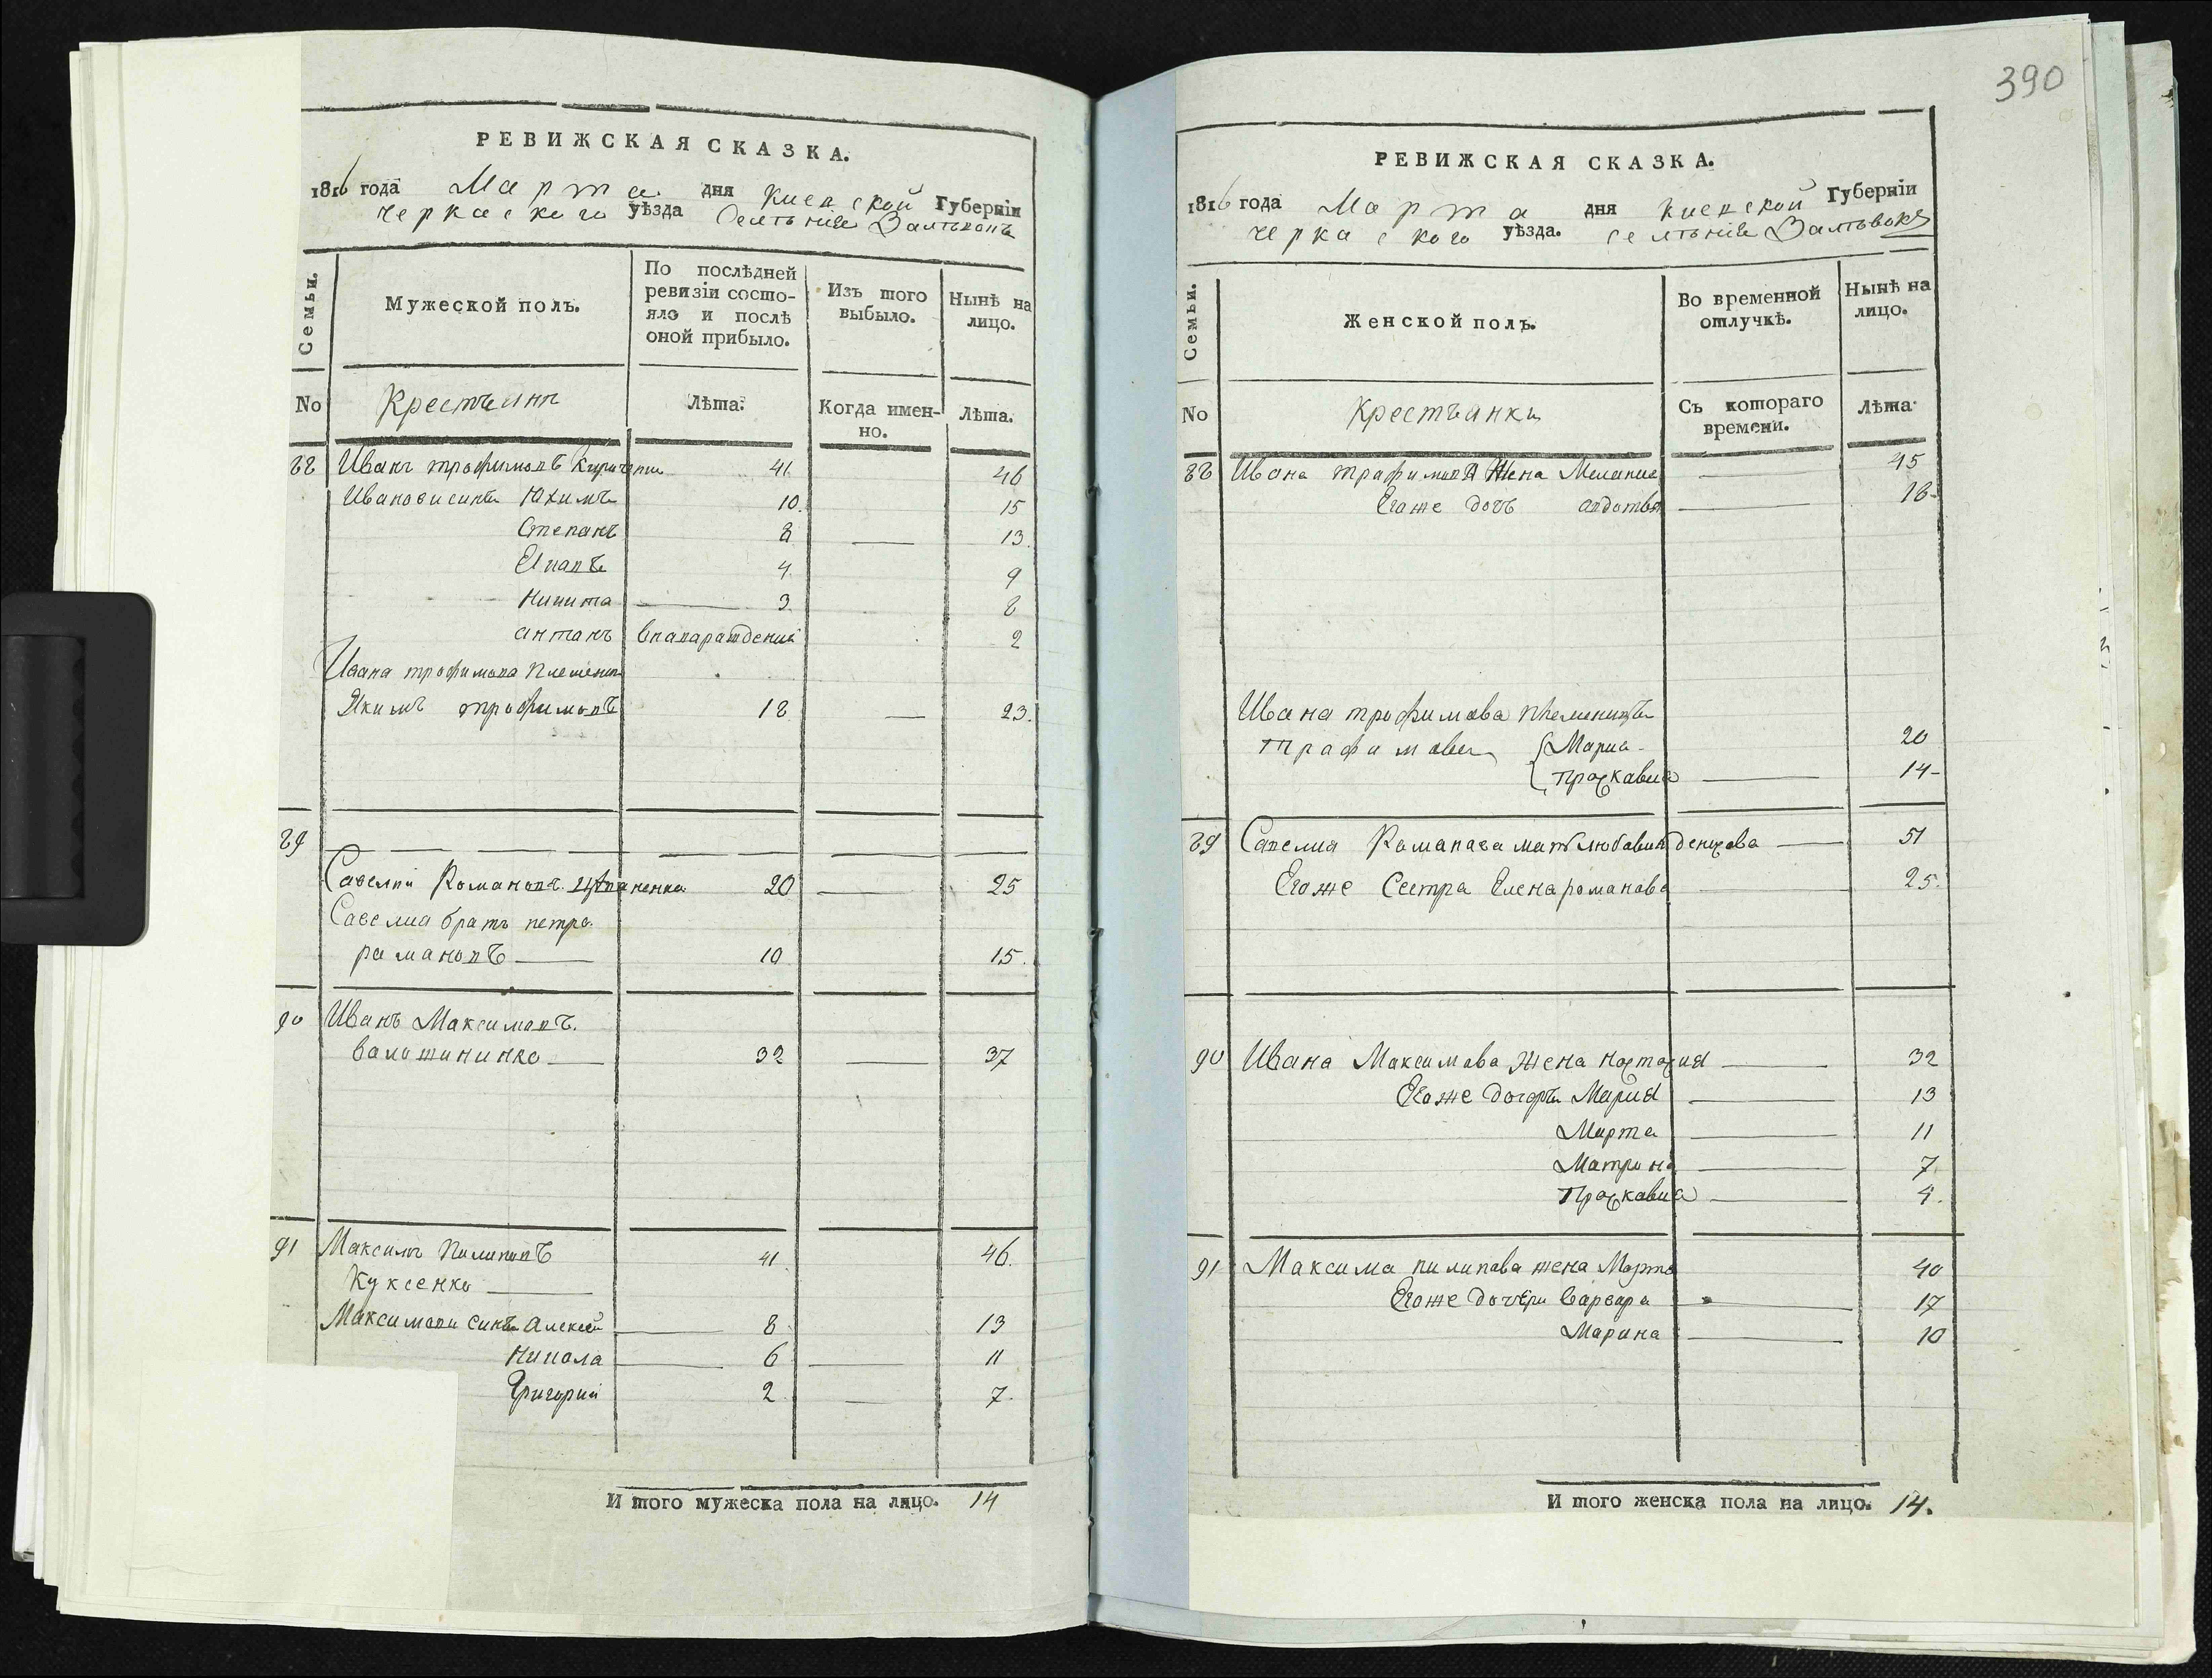 390
РЕВИЖСКАЯ СКАЗКА.
1816 года Марта дня Киевской Губернїи
Черкаского уѣзда Селѣние
Семьи.
Мужеской полъ.
По послѣдней ревизїи состояло и послѣ оной прибыло.
Изъ того выбыло.
Нынѣ на лицо.
No Крестьянъ Лѣта. Когда именно. Лѣта.
88 Иванъ трофимовъ 41 46
Ивановы сины Юхимъ 10. 15
Степанъ 8 — 13.
4. 9
Никита — 3 8
антанъ 2
Ивана трофимова
Якимъ трофимовъ 18 — 23.
89
Савелий Романовъ 20 — 25
Савелиа братъ петро
романовъ — 10 15.
90 Иванъ Максимовъ.
— 32 — 37
91 Максимъ Пилиповъ 41 46.
Куксенко —
Максимови сины Алексей — 8 13
Никола — 6 — 11
Григорий 2 — 7.
И того мужеска пола на лицо. 14
РЕВИЖСКАЯ СКАЗКА.
1816 года Марта дня Киевской Губернїи
Черкаского уѣзда. селѣние
Семьи.
Женской полъ.
Во временной отлучкѣ.
Нынѣ на лицо.
No Крестьянки Съ котораго времени. Лѣта.
88 Ивана трафимова Жена Мелания — 45
Егоже дочь авдотья — 18-
Ивана трофимова племеницы
трафимовы { Мариа - 20
{ праскавиа — 14-
89 Савелиа Романава мать — 51
Егоже Сестра Елена романова — 25.
90 Ивана Максимова Жена настасия — 32
Егоже дочеры Мария — 13
Марта — 11
Матрина — 7.
Праскавиа — 4.
91 Максима пилипава жена Марта 40
Егоже дочери варвара — 17
Марина — 10
И того женска пола на лицо. 14.